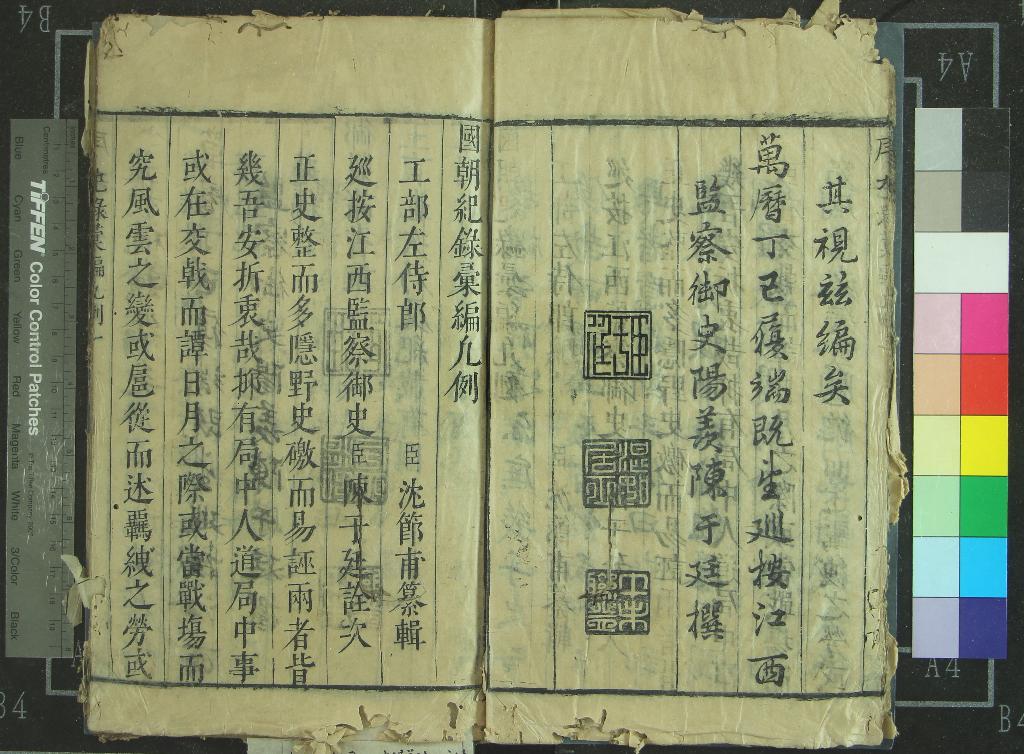 其視茲編矣
萬曆丁巳履端既望巡按江西
監察御史陽羨陳于廷撰
國朝紀錄彙編凡例
工部左侍郎臣沈節甫纂輯
巡按江西監察御史臣陳于廷詮次
正史整而多隱野史礉而易誣兩者皆
幾吾安折衷哉抑有局中人道局中事
或在交戟而譚日月之際或當戰場而
究風雲之變或扈從而述羈紲之勞或
TIFFEN Color Control Patches
Blue
Cyan
Green
Yellow
Red
Magenta
White
3/Color
Black
Centimetres
B4
A4
A4
B4
B4